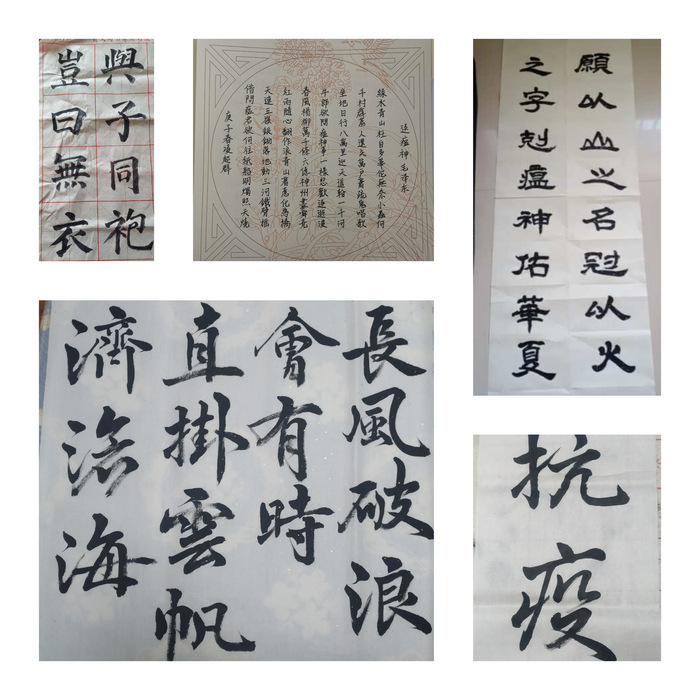 豈曰無衣
與子同袍
送瘟神毛澤東
綠水青山枉自多華佗無奈小蟲何
千村薜荔人遺矢萬戶蕭疏鬼唱歌
坐地日行八萬里巡天遙看一千河
牛郎欲問瘟神事一樣悲歡逐逝波
春風楊柳萬千條六億神州盡舜堯
紅雨隨心翻作浪青山著意化為橋
天連五嶺銀鋤落地動三河鐵臂搖
借問瘟君欲何往紙船明燭照天燒
庚子春
願以山之名冠以火
之字剋瘟神佑華夏
長風破浪
會有時
直掛雲帆
濟滄海
抗疫